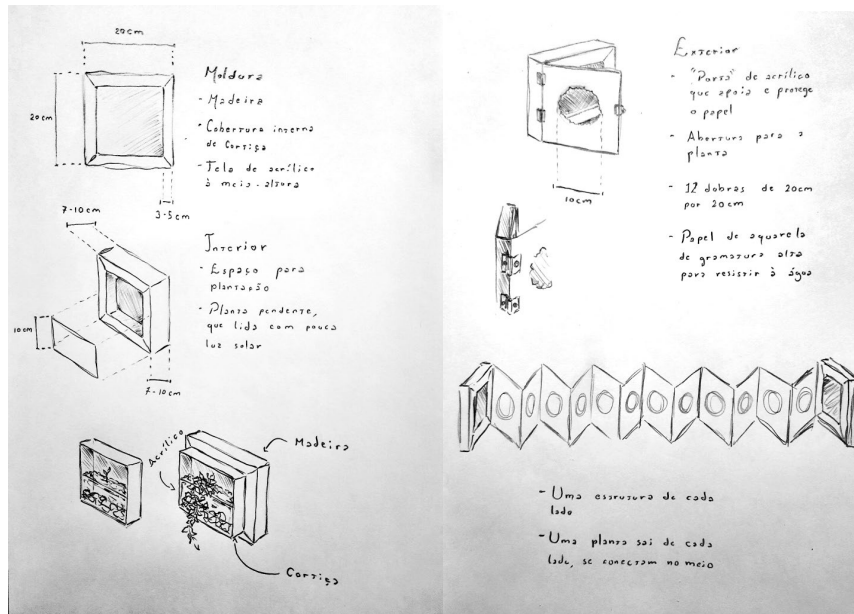 20cm
20cm
3-5cm
Moldura
- Madeira
- Cobertura interna
de Cortiça
- Tela de acrílico
à meia-altura
7-10cm
10cm
7-10cm
Interior
- Espaço para
plantação
- Planta pendente,
que lida com pouca
luz solar
Acrílico
Madeira
Cortiça
10cm
Exterior
- "Porta" de acrílico
que apoia e protege
o papel
- Abertura para a
planta
- 12 dobras de 20cm
por 20cm
- Papel de aquarela
de gramatura alta
para resistir à água
- Uma estrutura de cada
lado
- Uma planta sai de cada
lado, se conectam no meio